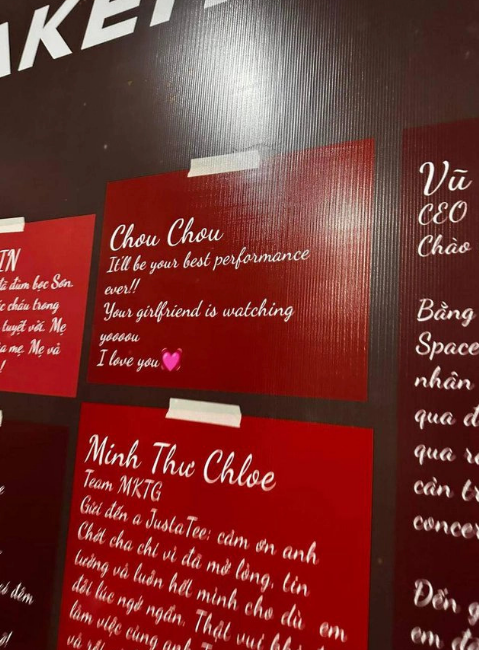 IN
đã đùm bọc Sơn.
cháu trong
tuyệt vời. Mẹ
mẹ. Mẹ và
Chou Chou
It'll be your best performance
ever!!
Your girlfriend is watching
yoooou
I love you💓
Minh Thư Chloe
Team MKTG
Gửi đến a JustaTee: cảm ơn anh
Chốt cha chỉ vì đã mở lòng, tin
tưởng và luôn hết mình cho dù em
đôi lúc ngớ ngẩn. Thật vui
làm việc cùng anh
Vũ
CEO
Chào
Bằng
Space
nhân
qua
qua
cần
concer
Đến
em